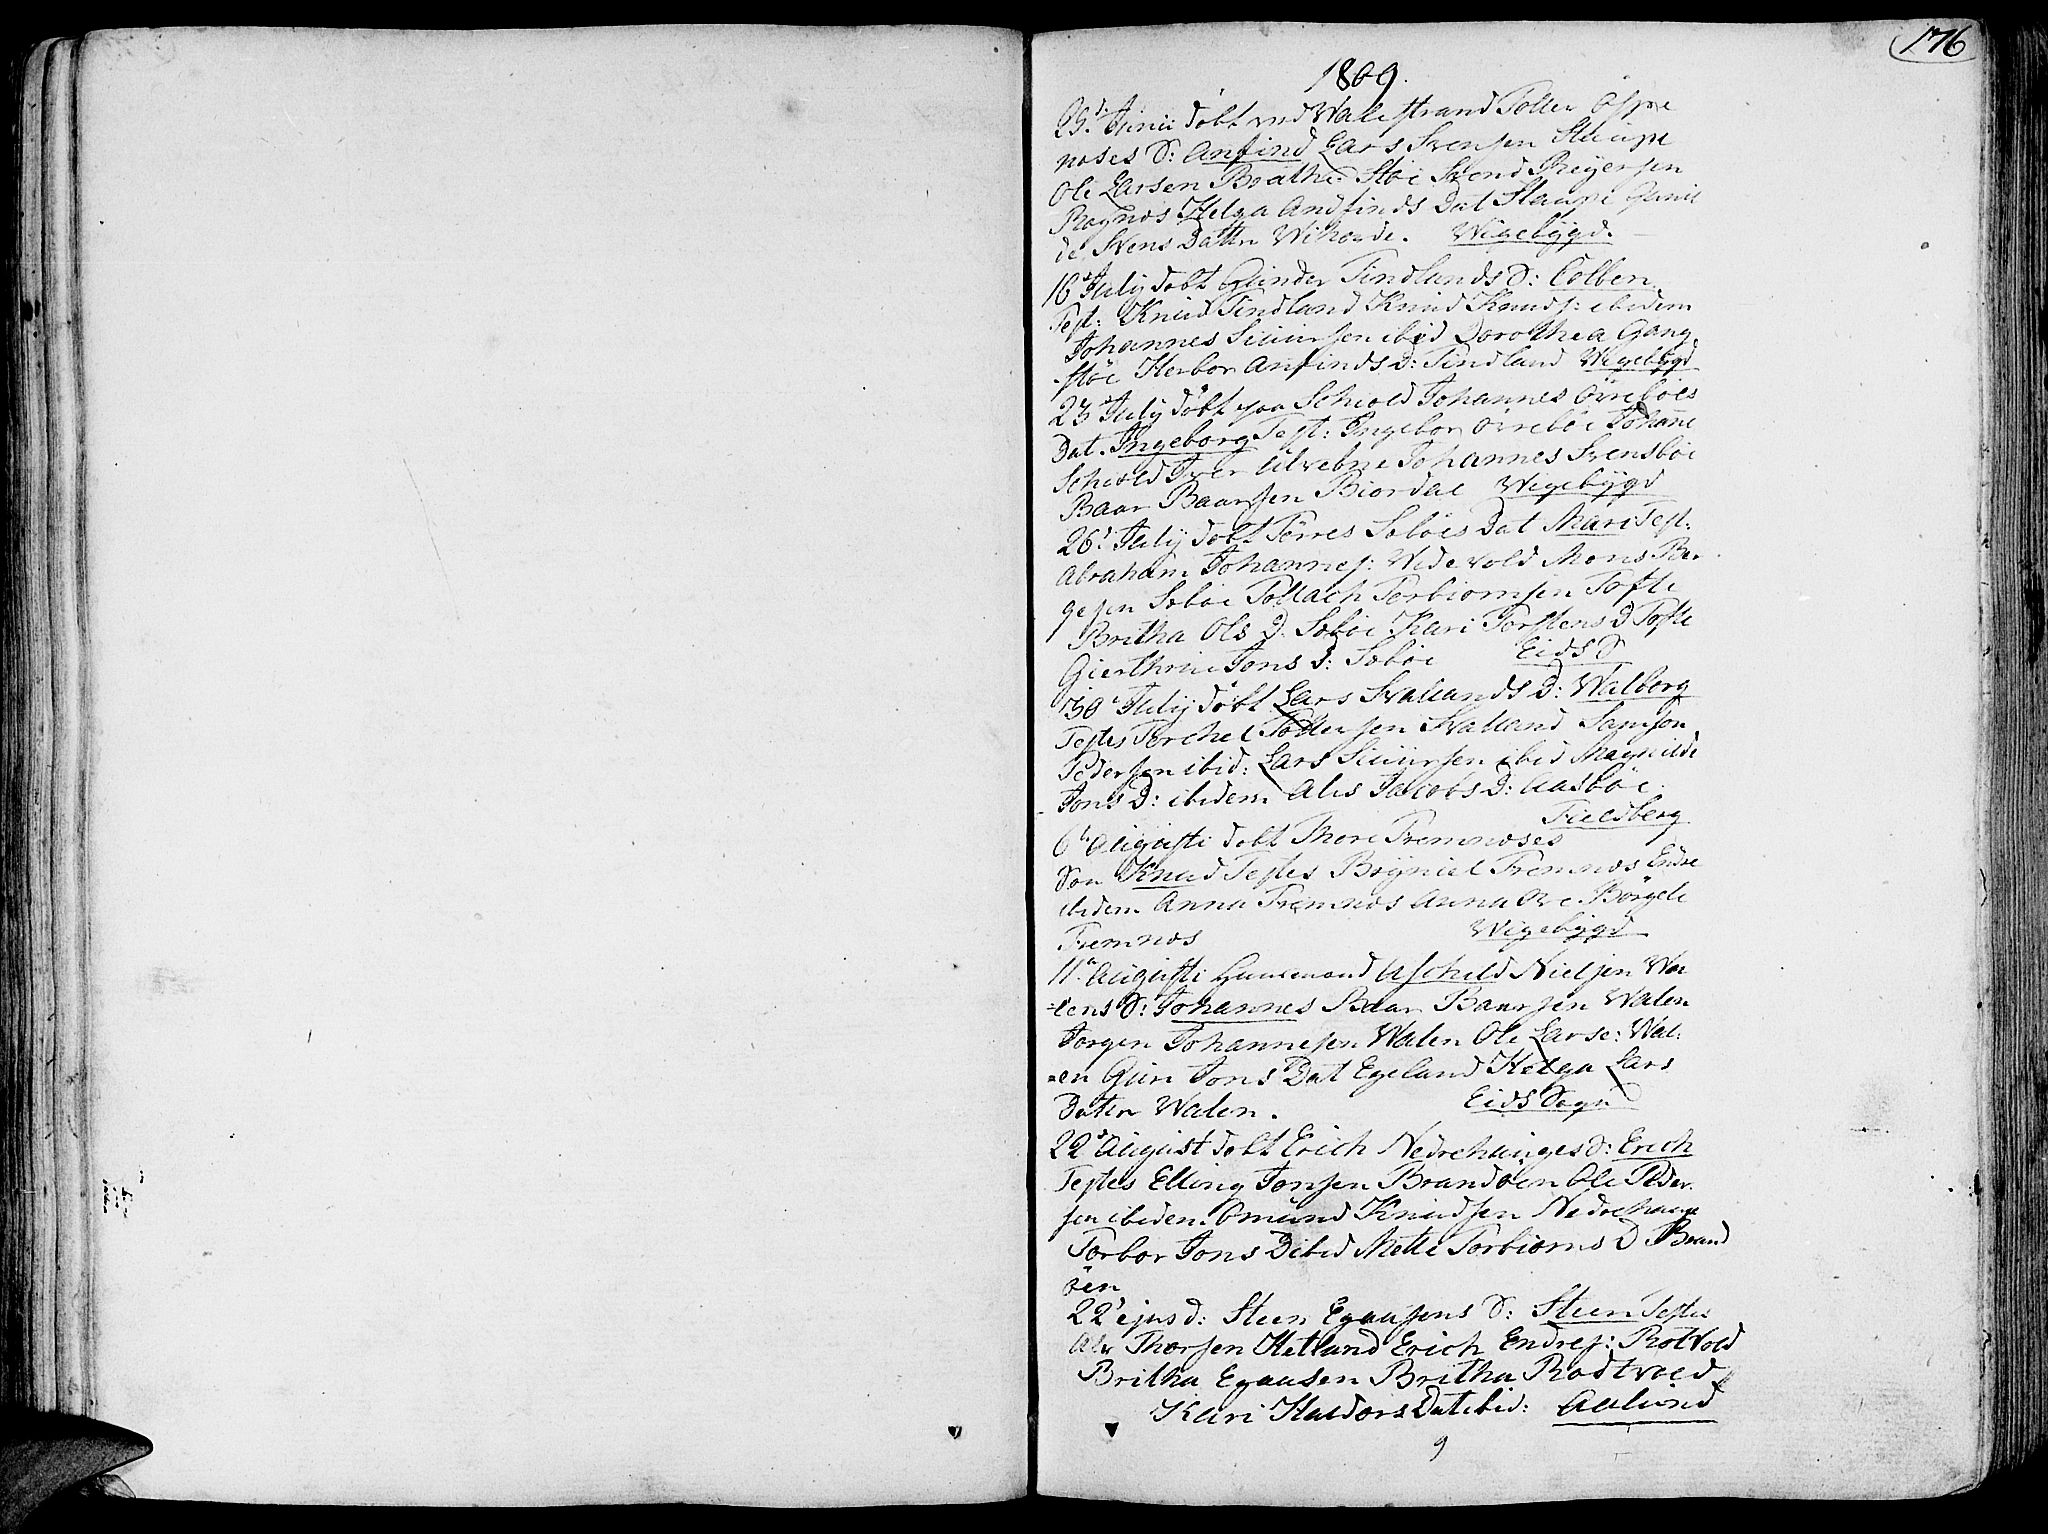 176
1809.
25d Junii döbt ved Walestrand Toller Espe
noses S: Anfind Lars Svensen Staupe
Ole Larsen Brathe Støe Svend Greyersen
Ragnos Helga Andfinds Dat Staupe Gunil
de Svens Datter Wikorde. Wigebÿgd.
16d Julÿ döbt Gunder Tindlands S: Colben
Test: Knud Tindland Knud Knuds: ibidem
Johannes Siursen ibid Dorothea Gang
støe Herbor Anfinds D: Tindland Wigebÿgd
23d Julÿ döbt paa Schiold Johannes Övreböes
Dat. Ingeborg Test: Ingebor Övreböe Johane
Schiold Iver Ulvebne Johannes Svensböe
Baar Baarsen Biordal Wigebÿgd
26d Julÿ döbt Törres Soböes Dat Mari Test:
Abraham Johannes: Widevold Mons Bør
gesen Soböe Tollach Torbiornsen Tofte
Britha Ols D. Soböe Kari Torstens D Tofte
Gierthrue Jons D: Soböe Eids S
30d Julÿ döbt Lars Svallands D: Walborg
Testes Torchel Tollersen Svalland Samson
Pedersen ibid: Lars Siursen ibid Magnilde
Jons D: ibidem Alis Jacobs D: Aasböe.
Fieldberg
6te Augusti döbt Thore Tremnoses
Son Knud Testes Brÿniel Tremnos Endre
ibidem Anna Tremnos Anna Ove Börgele
Tremnos Wigebÿgd
11te Augusti Huusmand Aschild Nielsen Wa
=lens S: Johannes Baar Baarsen Walen
Jorgen Johannesen Walen Ole Larse: Wal:
=en Guri Jons Dat Egeland Helga Lars
Dater Walen. Eids Sogn
22d August döbt Erich Nedrehauges S: Erich
Testes Elling Jonsen Brandöen Ole Peder
sen ibiden. Omund Knudsen Nedrehauge
Torbor Jons D ibid Mette Torbiorns D Brand
öen
22d ejusd: Steen Egaasens S: Steen Testes
Alv Thorsen Hetland Erich Endres: Rotvold
Britha Egaasen Britha Rodtvold
Kari Haldors Dat ibid: Aalund
9